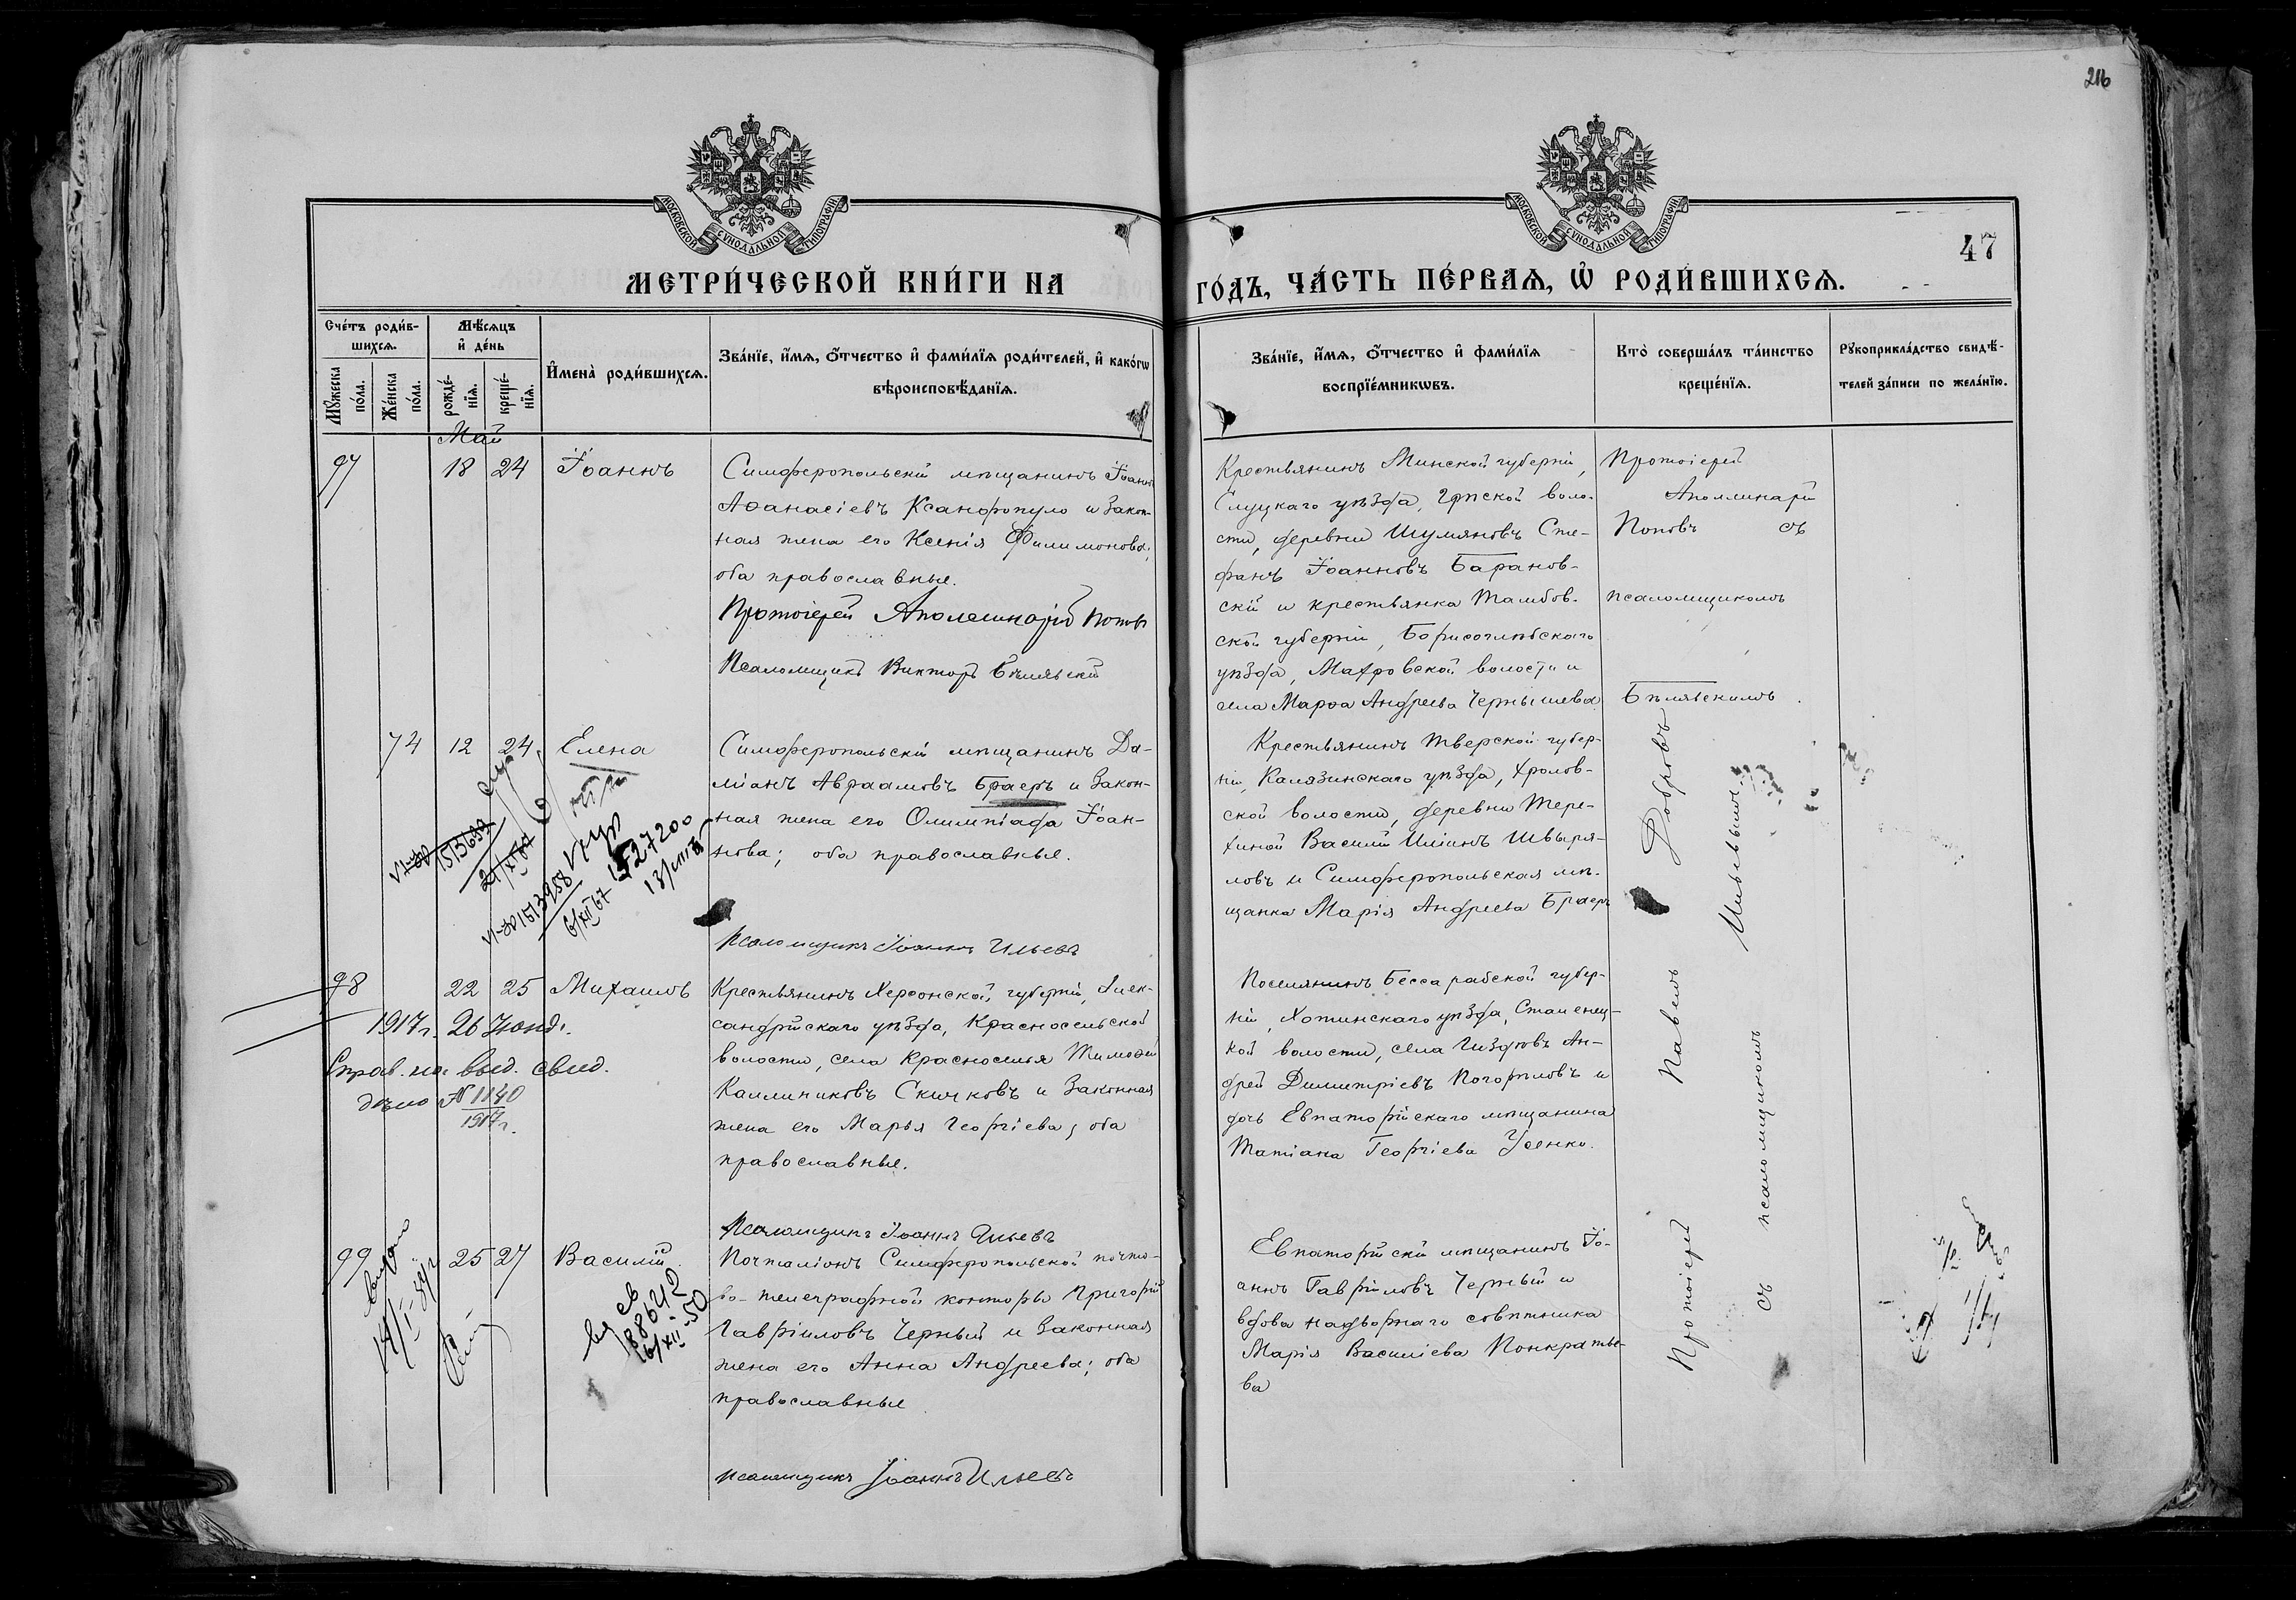 216
47
МОСКОВСКОЙ СѴНОДАЛЬНОЙ ТИПОГРАФІИ
МОСКОВСКОЙ СѴНОДАЛЬНОЙ ТИПОГРАФІИ
МЕТРИ́ЧЕСКОЙ КНИ́ГИ НА
ГО́ДЪ, ЧА́СТЬ ПЕ́РВАѦ, Ѡ҆ РОДИ́ВШИХСѦ.
Сче́тъ роди́в-
шихсѧ.
Мꙋ́жеска по́ла.
Же́нска по́ла.
Мѣ́сѧцъ
и҆ де́нь
рожде́-
нїѧ.
креще́-
нїѧ.
И҆мена̀ роди́вшихсѧ.
Зва́нїе, и҆́мѧ, ѻ҆́тчество и҆ фами́лїѧ роди́телей, и҆ како́гѡ
вѣроисповѣ́данїѧ.
Зва́нїе, и҆́мѧ, ѻ҆́тчество и҆ фами́лїѧ
воспрїе́мникѡвъ.
Кто̀ соверша́лъ та́инство
креще́нїѧ.
Рꙋкоприкла́дство свидѣ́-
телей за́писи по жела́нїю.
Май
97
18
24
Іоаннъ
Симферопольскій мѣщанинъ Іоаннъ
Аѳанасіевъ Ксанфопуло и закон-
ная жена его Ксенія Филимонова,
оба православные.
Протоіерей Аполлинарій Поповъ
Псаломщикъ Викторъ Бѣлявскій
Крестьянинъ Минской губерніи,
Слуцкаго уѣзда, Грпской воло-
сти, деревни Шумяновъ Сте-
фанъ Іоанновъ Баранов-
скій и крестьянка Тамбов-
ской губерніи, Борисоглѣбскаго
уѣзда, Махровской волости и
села Марѳа Андреева Чернышева
Протоіерей
Аполлинарій
Поповъ съ
псаломщикомъ
Бѣлявскимъ.
74
12
24
Елена
Симферопольскій мѣщанинъ Да-
міанъ Авраамовъ Браеръ и закон-
ная жена его Олимпіада Іоан-
нова; оба православные.
Псаломщикъ Іоаннъ Ильевъ
1513699
21/XI 67
1513958
6/XII 67
527200
Крестьянинъ Тверской губер-
ніи, Калязинскаго уѣзда, Хролов-
ской волости, деревни Тере-
хиной Василій Иліинъ Швыря-
ловъ и Симферопольская мѣ-
щанка Марія Андреева Браеръ
98
22
25
Михаилъ
1917 г. 26 Іюнь.
Справ. на выд. свид.
дѣло № 1140
1917 г.
Крестьянинъ Херсонской губерніи, Алек-
сандрійскаго уѣзда, Красносельской
волости, села Красноселья Тимоѳей
Каллиниковъ Скичковъ и законная
жена его Марья Георгіева, оба
православные.
Псаломщикъ Іоаннъ Ильевъ
Поселянинъ Бессарабской губер-
ніи, Хотинскаго уѣзда, Сталенец-
кой волости, села Гиздовъ Ан-
дрей Димитріевъ Погорѣловъ и
дочь Евпаторійскаго мѣщанина
Татіана Георгіева Усенко.
99
25
27
Василій
188642
6/XII-50
Почталіонъ Симферопольской почто-
во-телеграфной конторы Григорій
Гавріиловъ Черный и законная
жена его Анна Андреева; оба
православные
Псаломщикъ Іоаннъ Ильевъ
Евпаторійскій мѣщанинъ Іо-
аннъ Гавріиловъ Черный и
вдова надворнаго совѣтника
Марія Васиliева Понкратье-
ва
Протоіерей Павелъ Добровъ
съ псаломщикомъ Ильевымъ.